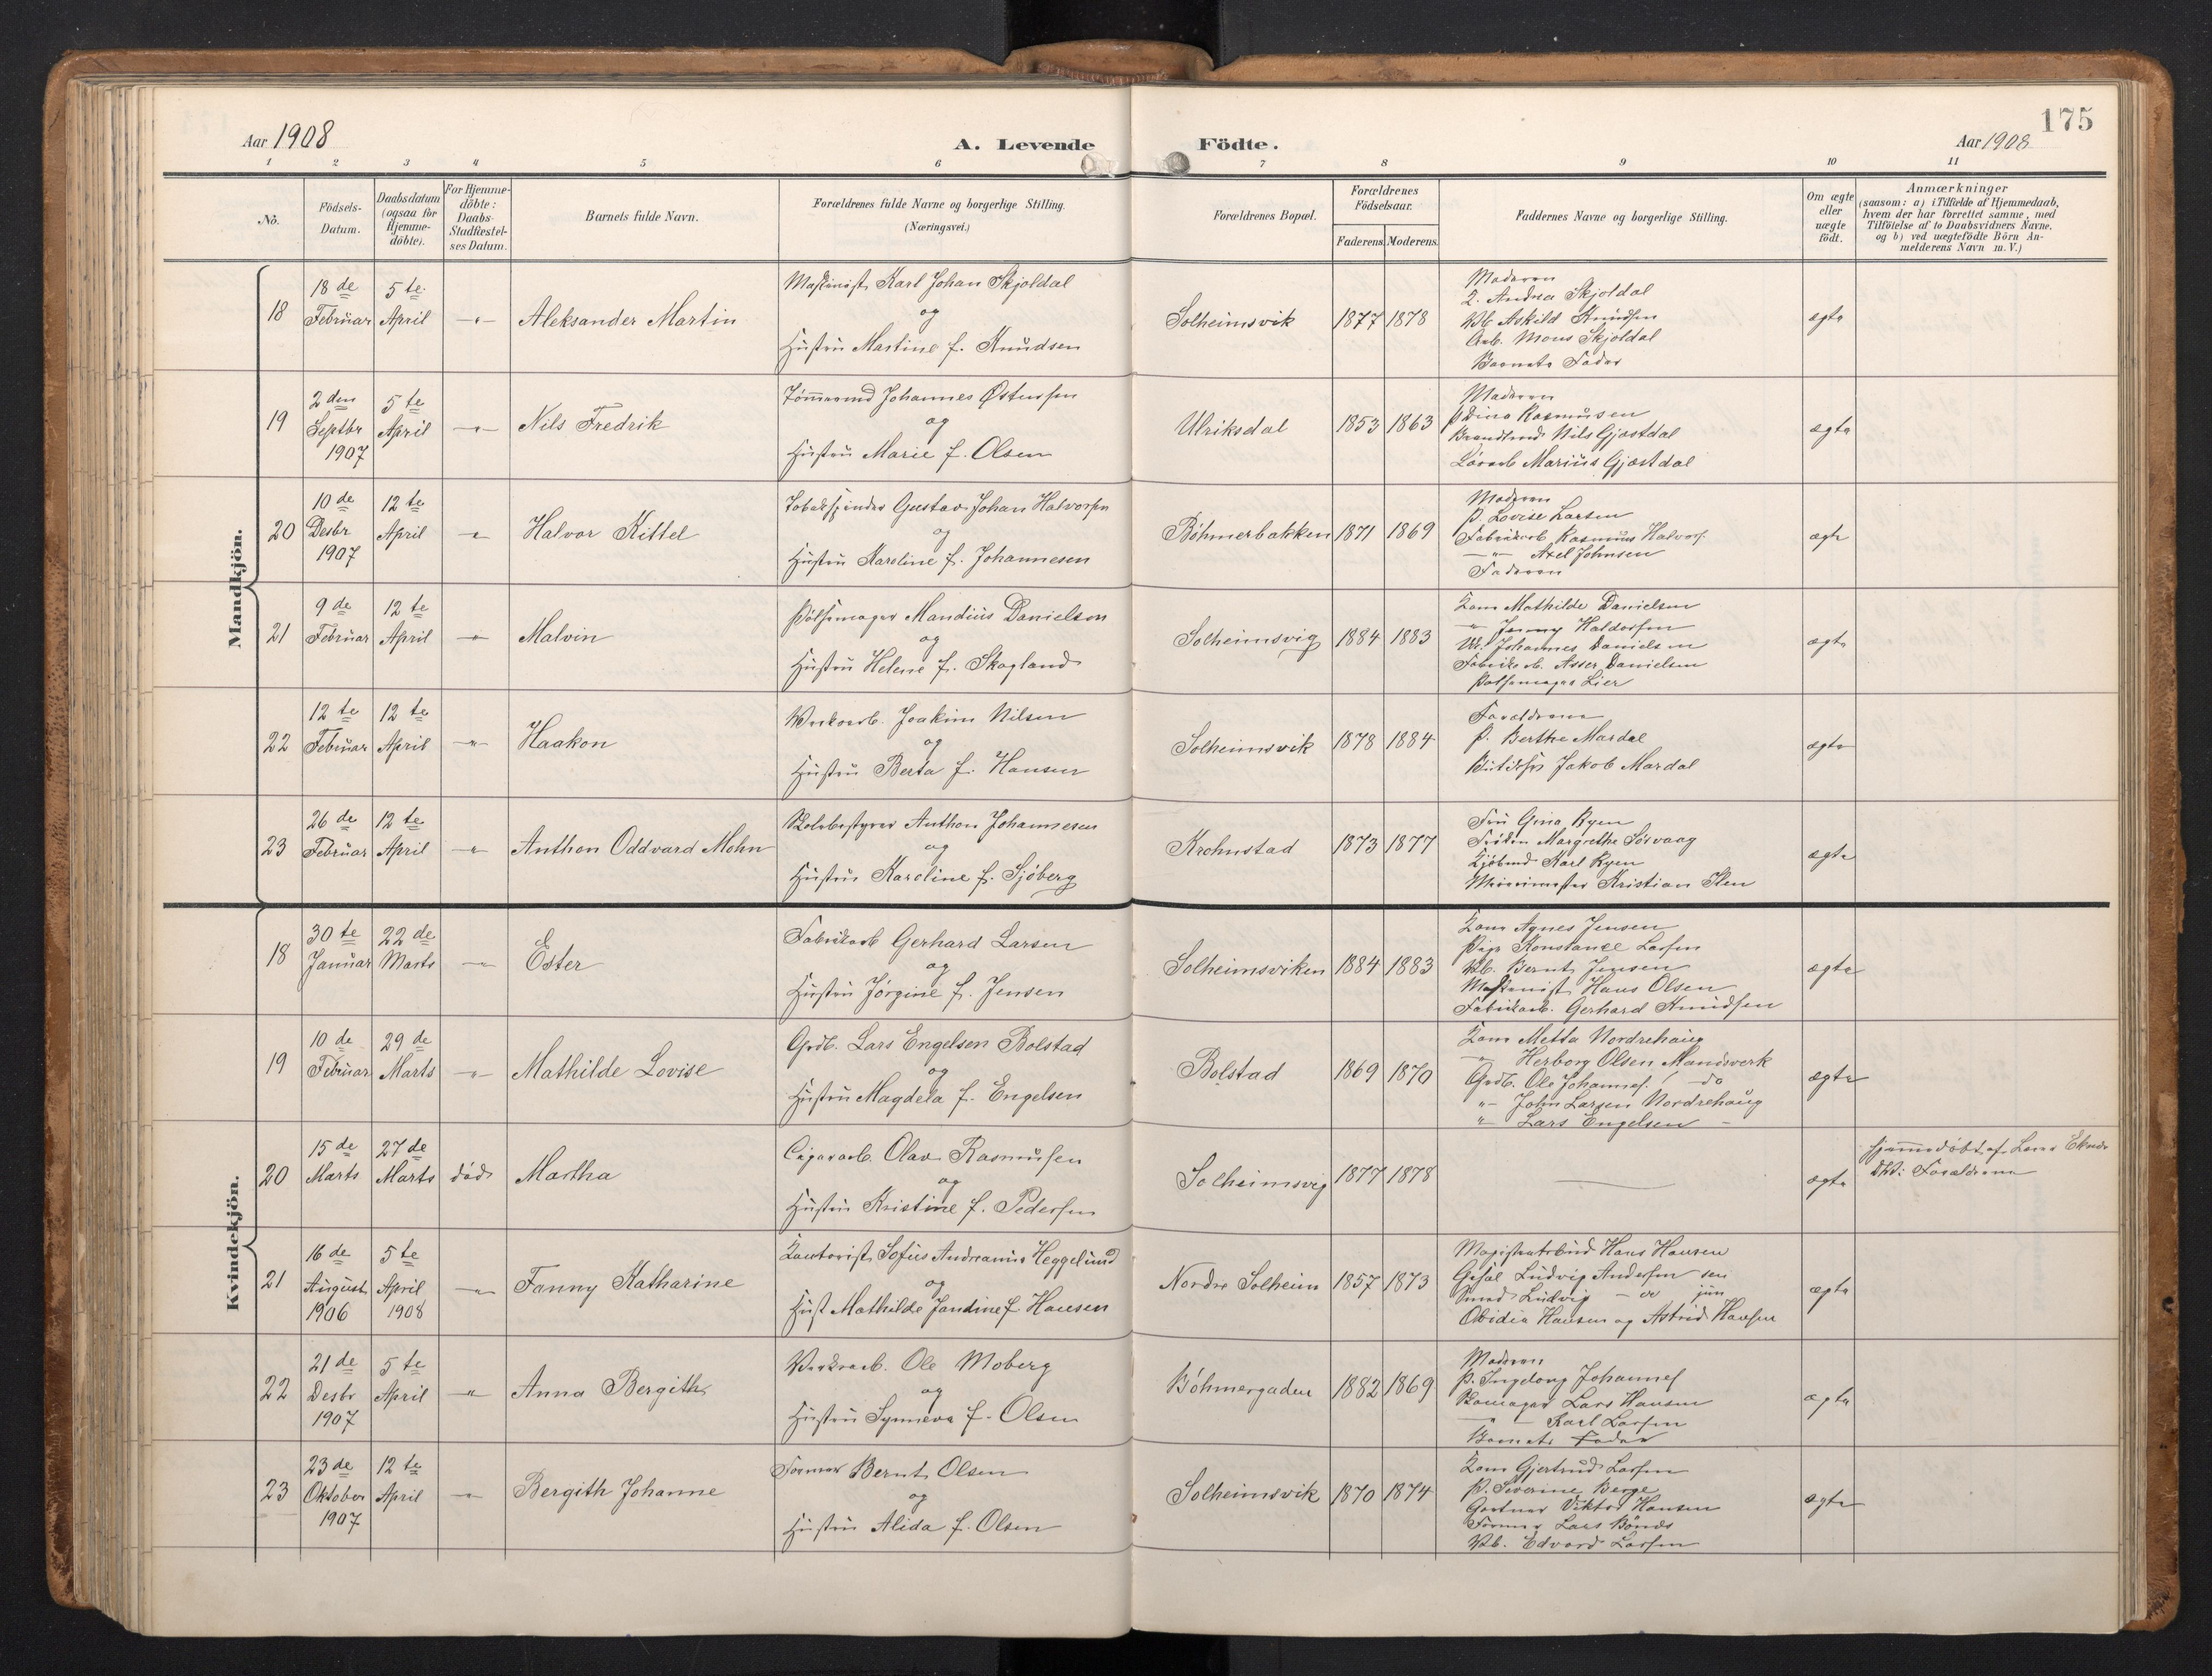 175
Aar 1908
A. Levende Födte.
Aar 1908
1 2 3 4 5 6 7 8 9 10 11
Nô.
Födsels-
Datum.
Daabsdatum
(ogsaa for
Hjemme-
döbte).
For Hjemme-
döbte:
Daabs-
Stadfæstel-
ses Datum.
Barnets fulde Navn.
Forældrenes fulde Navne og borgerlige Stilling.
(Næringsvei.)
Forældrenes Bopæl.
Forældrenes
Födselsaar.
Faderens. Moderens.
Faddernes Navne og borgerlige Stilling.
Om ægte
eller
uægte
födt.
Anmærkninger
(saasom: a) i Tilfælde af Hjemmedaab,
hvem der har forrettet samme, med
Tilföielse af to Daabsvidners Navne.
og b) ved uægtefödte Börn An-
melderens Navn m.V.)
Mandkjön.
18
18 de
Februar
5 te
April
—"—
Aleksander Martin
Maskinist Karl Johan Skjoldal
og
Hustru Martine f. Knudsen
Solheimsvik
1877 1878
Moderen
Andrea Skjoldal
Askild Knudsen
Arb. Mons Skjoldal
Barnets Fader
ægte
19
2 den
Septbr
1907
5 te
April
—"—
Nils Fredrik
Tömmermd Johannes Østensen
og
Hustru Marie f. Olsen
Ulriksdal
1853 1863
Moderen
P Dina Rasmussen
Nils Gjæstdal
Marius Gjæstdal
ægte
20
10 de
Desbr
1907
12 te
April
—"—
Halvor Kittel
Tobakspinder Gustav Johan Halvorsen
og
Hustru Karoline f. Johannesen
Böhmerbakken
1871 1869
Moderen
P. Lovise Larsen
Fabrikarb Rasmus Halvors.
—"— Axel Johnsen
Faderen
ægte
21
9 de
Februar
12 te
April
—"—
Malvin
Pölsemager Mandius Danielsen
og
Hustru Helene f. Skogland
Solheimsvig
1884 1883
Kone Mathilde Danielsen
" Jenny Haldorsen
Johannes Danielsen
Fabriksarb. Asser Danielsen
Pölsemager Lier
ægte
22
12 te
Februar
12 te
April
—"—
Haakon
Verksarb. Joakim Nilsen
og
Hustru Berta f. Hansen
Solheimsvik
1878 1884
Forældrene
P. Berthe Mardal
Jakob Mardal
ægte
23
26 de
Februar
12 te
April
—"—
Anthon Oddvard Mohn
Skolebestyrer Anthon Johannesen
og
Hustru Karoline f. Sjöberg
Krohnstad
1873 1877
Fru Gina Ryen
Fröken Margrethe Sörvaag
Kjöbmd Karl Ryen
Kristian Sten
ægte
Kvindekjön.
18
30 te
Januar
22 de
Marts
—"—
Ester
Fabrikarb Gerhard Larsen
og
Hustru Jörgine f. Jensen
Solheimsviken
1884 1883
Kone Agnes Jensen
Pige Konstance Larsen
Bernt Jensen
Maskinist Hans Olsen
Fabrikarb. Gerhard Knudsen
ægte
19
10 de
Februar
29 de
Marts
—"—
Mathilde Lovise
Grdb. Lars Engelsen Bolstad
og
Hustru Magdela f. Engelsen
Bolstad
1869 1870
Kone Metta Nordrehaug
" Herborg Olsen Mandsverk
Grdb. Ole Johannes. do
"— John Larsen Nordrehaug
"— Lars Engelsen —
ægte
20
15 de
Marts
27 de
Marts
död
Martha
Cigararb. Olav Rasmussen
og
Hustru Kristine f. Pedersen
Solheimsvig
1877 1878
ægte
Hjemmedöbt af Lars
Forældrene
21
16 de
August
1906
5 te
April
1908
—"—
Fanny Katharine
Kontorist Sofus Andreanus Heggelund
og
Hust Mathilde Jandine f Hansen
Nordre Solheim
1857 1873
Magistratsbud Hans Hansen
Ludvig Andersen sen
Smed Ludvig — do jun
Ovidia Hansen og Astrid Hansen
ægte
22
21 de
Desbr
1907
5 te
April
—"—
Anna Bergithe
Verksarb. Ole Moberg
og
Hustru Synneva f. Olsen
Böhmergaden
1882 1869
Moderen
P. Ingeborg Johannes
Skomager Lars Hansen
—"— Karl Larsen
Barnets Fader
ægte
23
23 de
Oktober
1907
12 te
April
—"—
Bergith Johanne
Former Bernt Olsen
og
Hustru Alida f. Olsen
Solheimsvik
1870 1874
Kone Gjertrud Larsen
P. Severine Berge
Gartner Viktor Hansen
Former Lars Bönds
Edvard Larsen
ægte